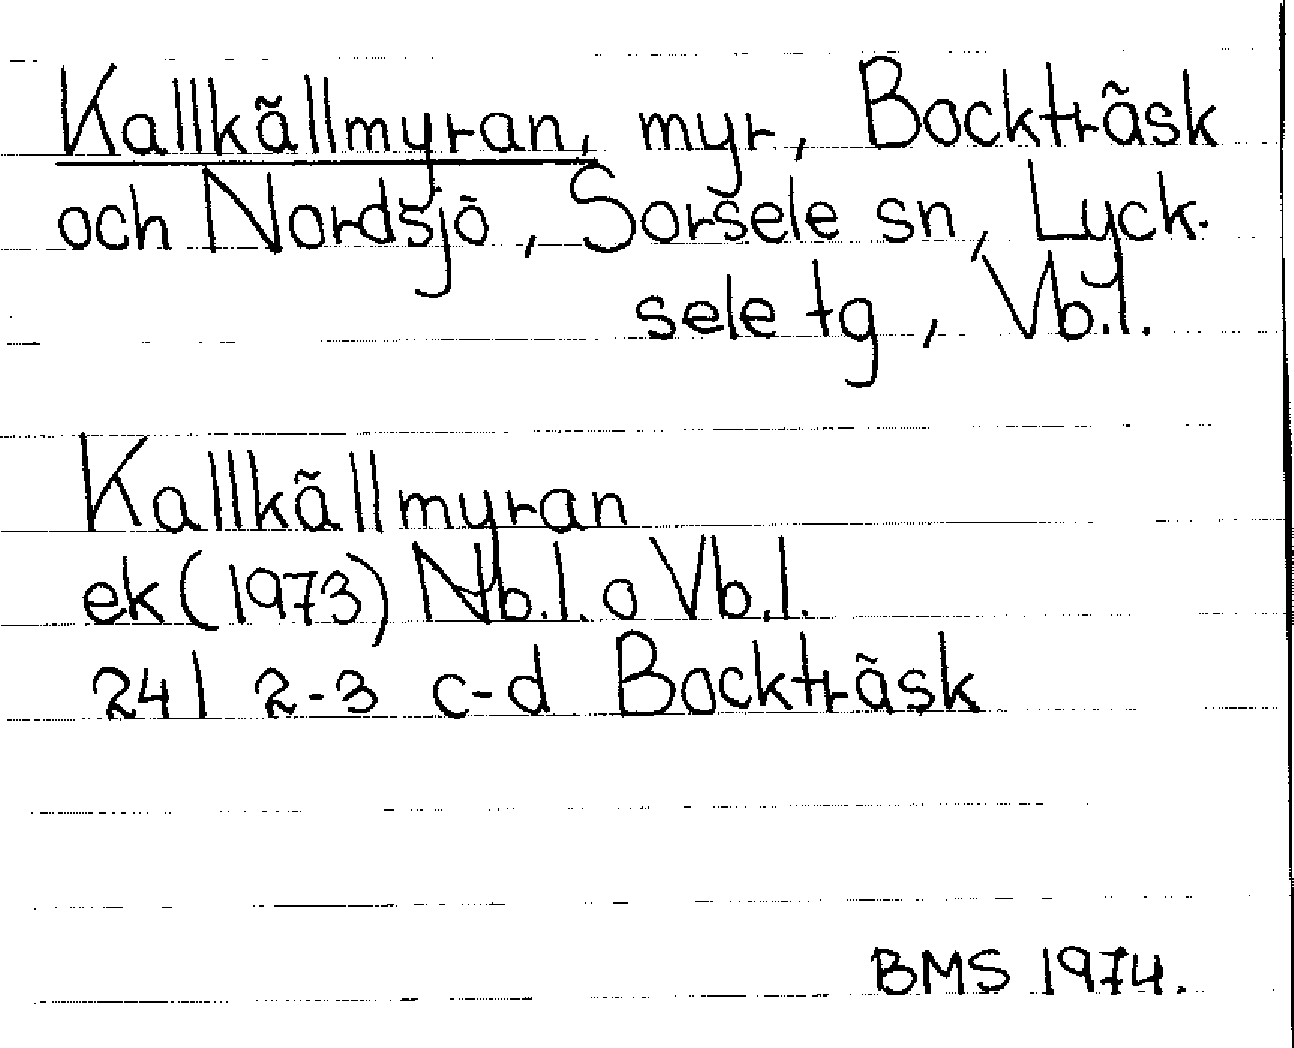 Kallkällmyran, myr, Bockträsk
och Nordsjö, Sorsele sn, Lyck-
sele tg, Vb.l.
Kallkällmyran
ek (1973) Nb.l. o Vb.l.
24 I 2-3 c-d Bockträsk
BMS 1974.